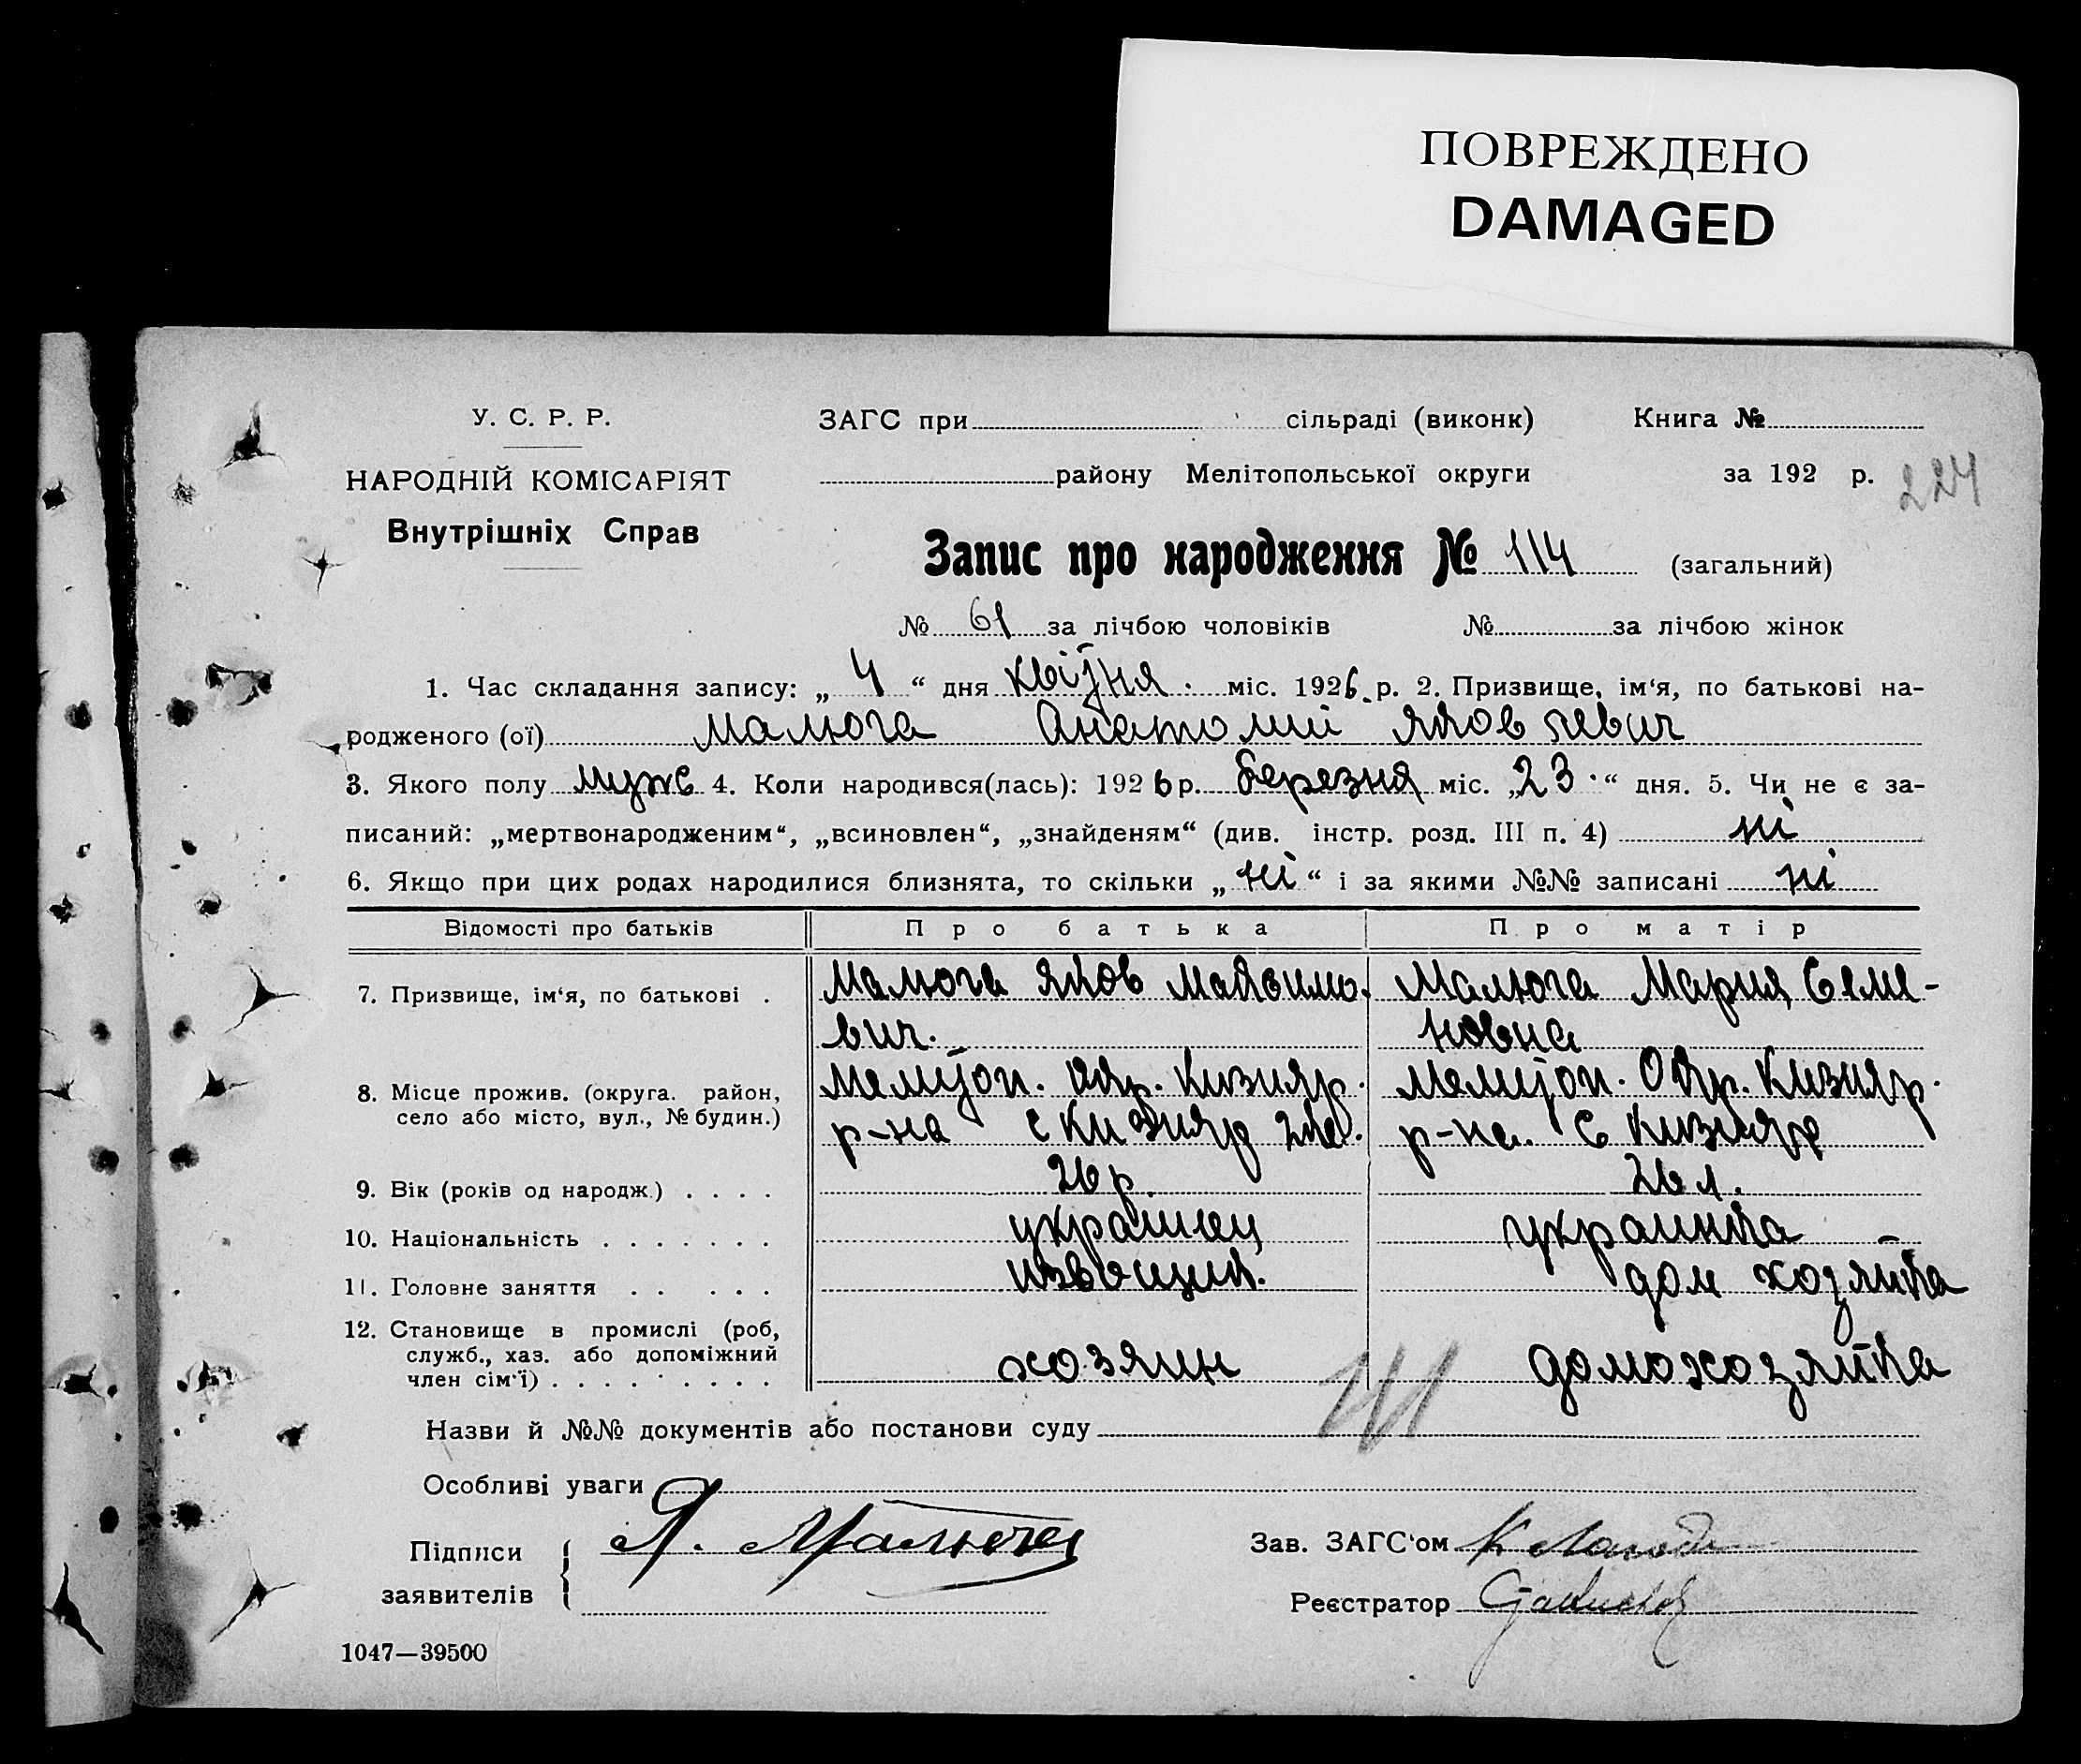 ПОВРЕЖДЕНО
DAMAGED
У. С. Р. Р.
НАРОДНІЙ КОМІСАРІЯТ
Внутрішніх Справ
ЗАГС при сільраді (виконк) Книга №
району Мелітопольської округи за 192 р.
224
Запис про народження № 114 (загальний)
№ 61 за лічбою чоловіків № за лічбою жінок
1. Час складання запису: „ 4 “ дня квітня. міс. 1926 р. 2. Призвище, ім‘я, по батькові на-
родженого (ої) Малюга Анатолий Яковлевич
3. Якого полу мужс 4. Коли народився(лась): 1926 р. березня міс. „23“ дня. 5. Чи не є за-
писаний: „мертвонародженим“, „всиновлен“, „знайденям“ (див. інстр. розд. III п. 4) ні
6. Якщо при цих родах народилися близнята, то скільки „ні“ і за якими №№ записані ні
Відомості про батьків Про батька Про матір
7. Призвище, ім‘я, по батькові . Малюга Яков Максимо- Малюга Мария Семе-
вич. новна
8. Місце прожив. (округа. район, Мелитоп. окр. Кизияр. Мелитоп. Окр. Кизияр.
село або місто, вул., № будин.) р-на с Кизияр р-на. С Кизияр
9. Вік (років од народж.) . . . . 26 р. 26 л.
10. Національність . . . . . . . украинец украинка
11. Головне заняття . . . . . извощик. дом хозяйка
12. Становище в промислі (роб,
служб., хаз. або допоміжний хозяин домохозяйка
член сім‘ї) . . . . . . . . .
Назви й №№ документів або постанови суду
Особливі уваги
Підписи Я. Малюга Зав. ЗАГС‘ом
заявителів Реєстратор
1047—39500